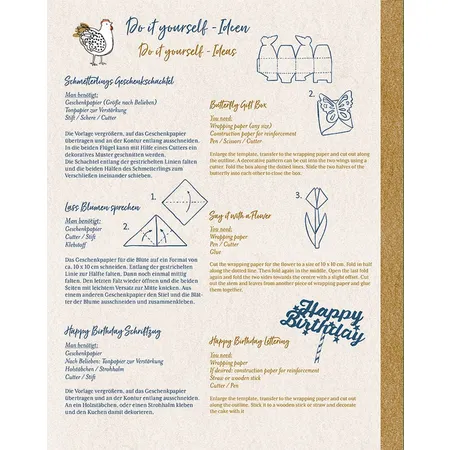 Do it yourself - Ideen
Do it yourself - Ideas
Schmetterlings Geschenkschachtel
Man benötigt:
Geschenkpapier (Größe nach Belieben)
Tonpapier zur Verstärkung
Stift / Schere / Cutter
Die Vorlage vergrößern, auf das Geschenkpapier
übertragen und an der Kontur entlang ausschneiden.
In die beiden Flügel kann mit Hilfe eines Cutters ein
dekoratives Muster geschnitten werden.
Die Schachtel entlang der gestrichelten Linien falten
und die beiden Hälften des Schmetterlings zum
Verschließen ineinander schieben.
2.
Butterfly Gift Box
You need:
Wrapping paper (any size)
Construction paper for reinforcement
Pen / Scissors / Cutter
Enlarge the template, transfer to the wrapping paper and cut out along
the outline. A decorative pattern can be cut into the two wings using a
cutter. Fold the box along the dotted lines. Slide the two halves of the
butterfly into each other to close the box.
Lass Blumen sprechen
Man benötigt:
Geschenkpapier
Cutter / Stift
Klebstoff
1.
2.
Das Geschenkpapier für die Blüte auf ein Format von
ca. 10 x 10 cm schneiden. Entlang der gestrichelten
Linie zur Hälfte falten. Dann noch einmal mittig
falten. Den letzten Falz wieder öffnen und die beiden
Seiten mit leichtem Versatz zur Mitte knicken. Aus
einem anderen Geschenkpapier den Stiel und die Blät-
ter der Blume ausschneiden und zusammenkleben.
3.
Say it with a Flower
You need:
Wrapping paper
Pen / Cutter
Glue
Cut the wrapping paper for the flower to a size of 10 x 10 cm. Fold in half
along the dotted line. Then fold again in the middle. Open the last fold
again and fold the two sides towards the centre with a slight offset. Cut
out the stem and leaves from another piece of wrapping paper and glue
them together.
Happy Birthday
Happy Birthday Schriftzug
Man benötigt:
Geschenkpapier
Nach Belieben: Tonpapier zur Verstärkung
Holzstäbchen / Strohhalm
Cutter / Stift
Die Vorlage vergrößern, auf das Geschenkpapier
übertragen und an der Kontur entlang ausschneiden.
An ein Holzstäbchen, oder einen Strohhalm kleben
und den Kuchen damit dekorieren.
Happy Birthday lettering
You need:
Wrapping paper
If desired: construction paper for reinforcement
Straw or wooden stick
Cutter / Pen
Enlarge the template, transfer to the wrapping paper and cut out
along the outline. Stick it to a wooden stick or straw and decorate
the cake with it